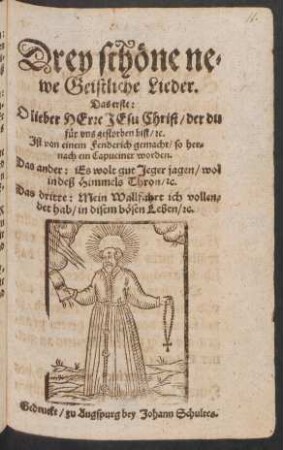 Drey schöne ne⸗
we Geistliche Lieder.
Das erste:
O lieber HErre JEsu Christ/ der du
für vns gestorben bist/ ꝛc.
Ist von einem Fenderich gemacht/ so her⸗
nach ein Capuciner worden.
Das ander: Es wolt gut Jeger jagen/ wol
in deß Himmels Thron/ ꝛc.
Das dritte: Mein Wallfahrt ich vollen⸗
det hab/ in disem bösen Leben/ ꝛc.
Gedruckt/ zu Augspurg bey Johann Schultes.